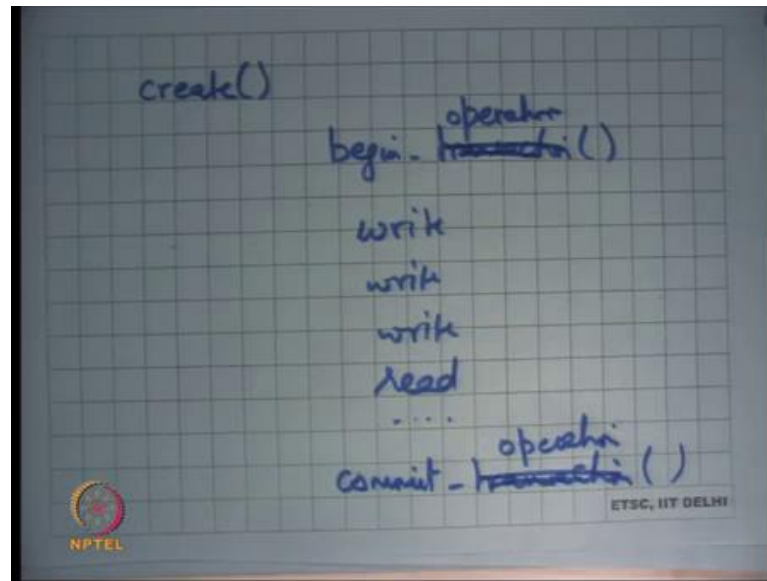 create()
operation
begin- transaction ()
write
write
write
read
....
operation
commit - transaction ()
ETSC, IIT DELHI
NPTEL